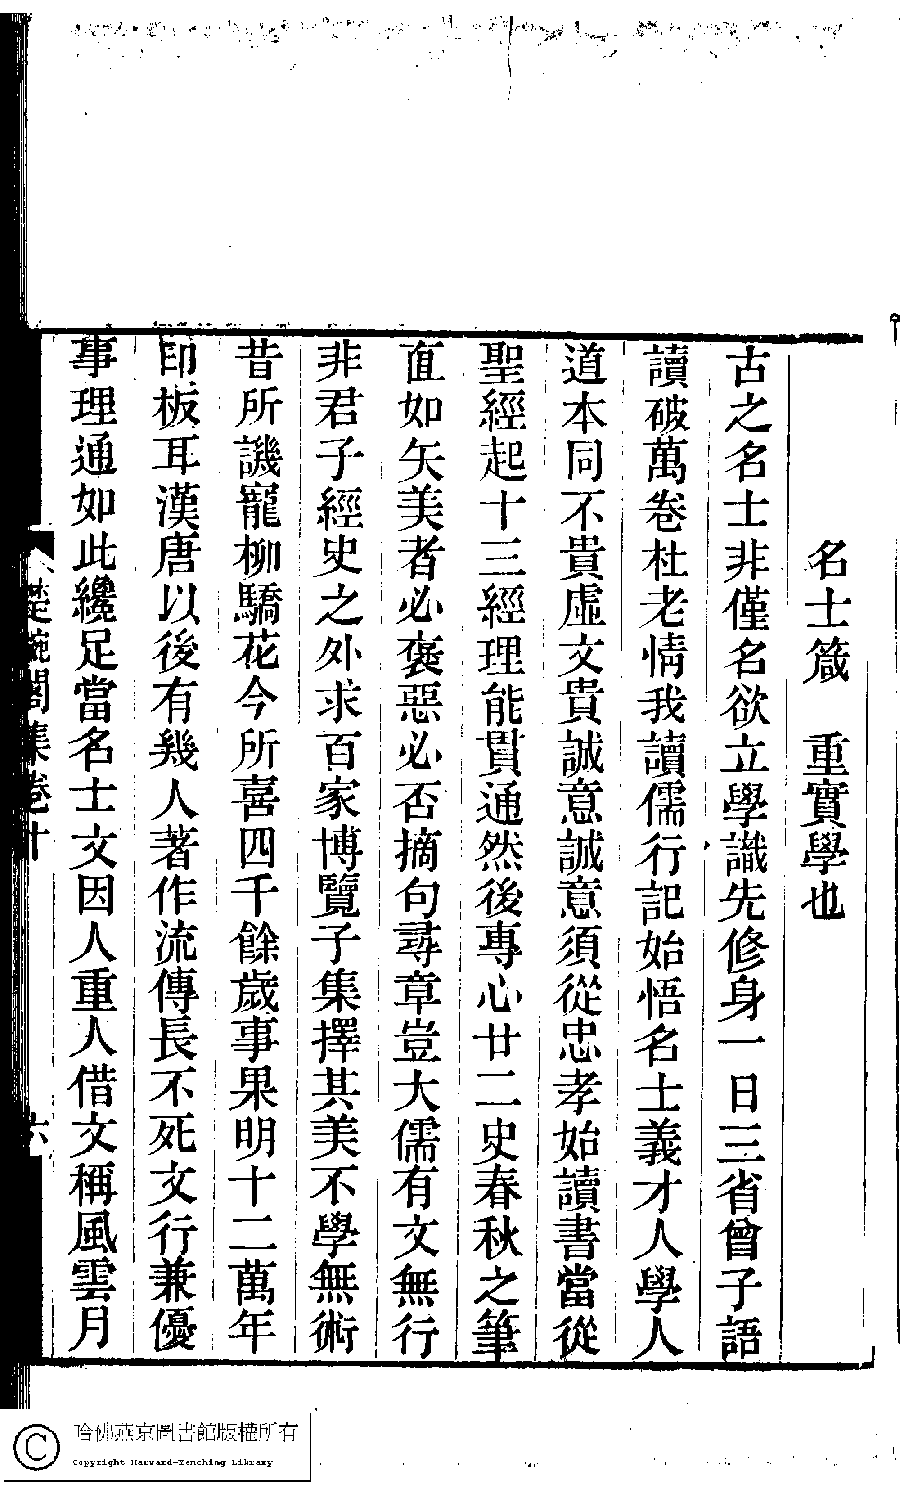 名士箴　重實學也
古之名士非僅名欲立學識先修身一日三省曾子語
讀破萬卷杜老情我讀儒行記始悟名士義才人學人
道本同不貴虛文貴誠意誠意須從忠孝始讀書當從
聖經起十三經理能貫通然後專心廿二史春秋之筆
直如矢美者必褒惡必否摘句尋章豈大儒有文無行
非君子經史之外求百家博覽子集擇其美不學無術
昔所譏寵柳驕花今所喜四千餘歲事果明十二萬年
印板耳漢唐以後有幾人著作流傳長不死文行兼優
事理通如此纔足當名士文因人重人借文稱風雲月
楚畹閣集卷十
六
哈佛燕京圖書館版權所有
Copyright Harvard-Yenching Library